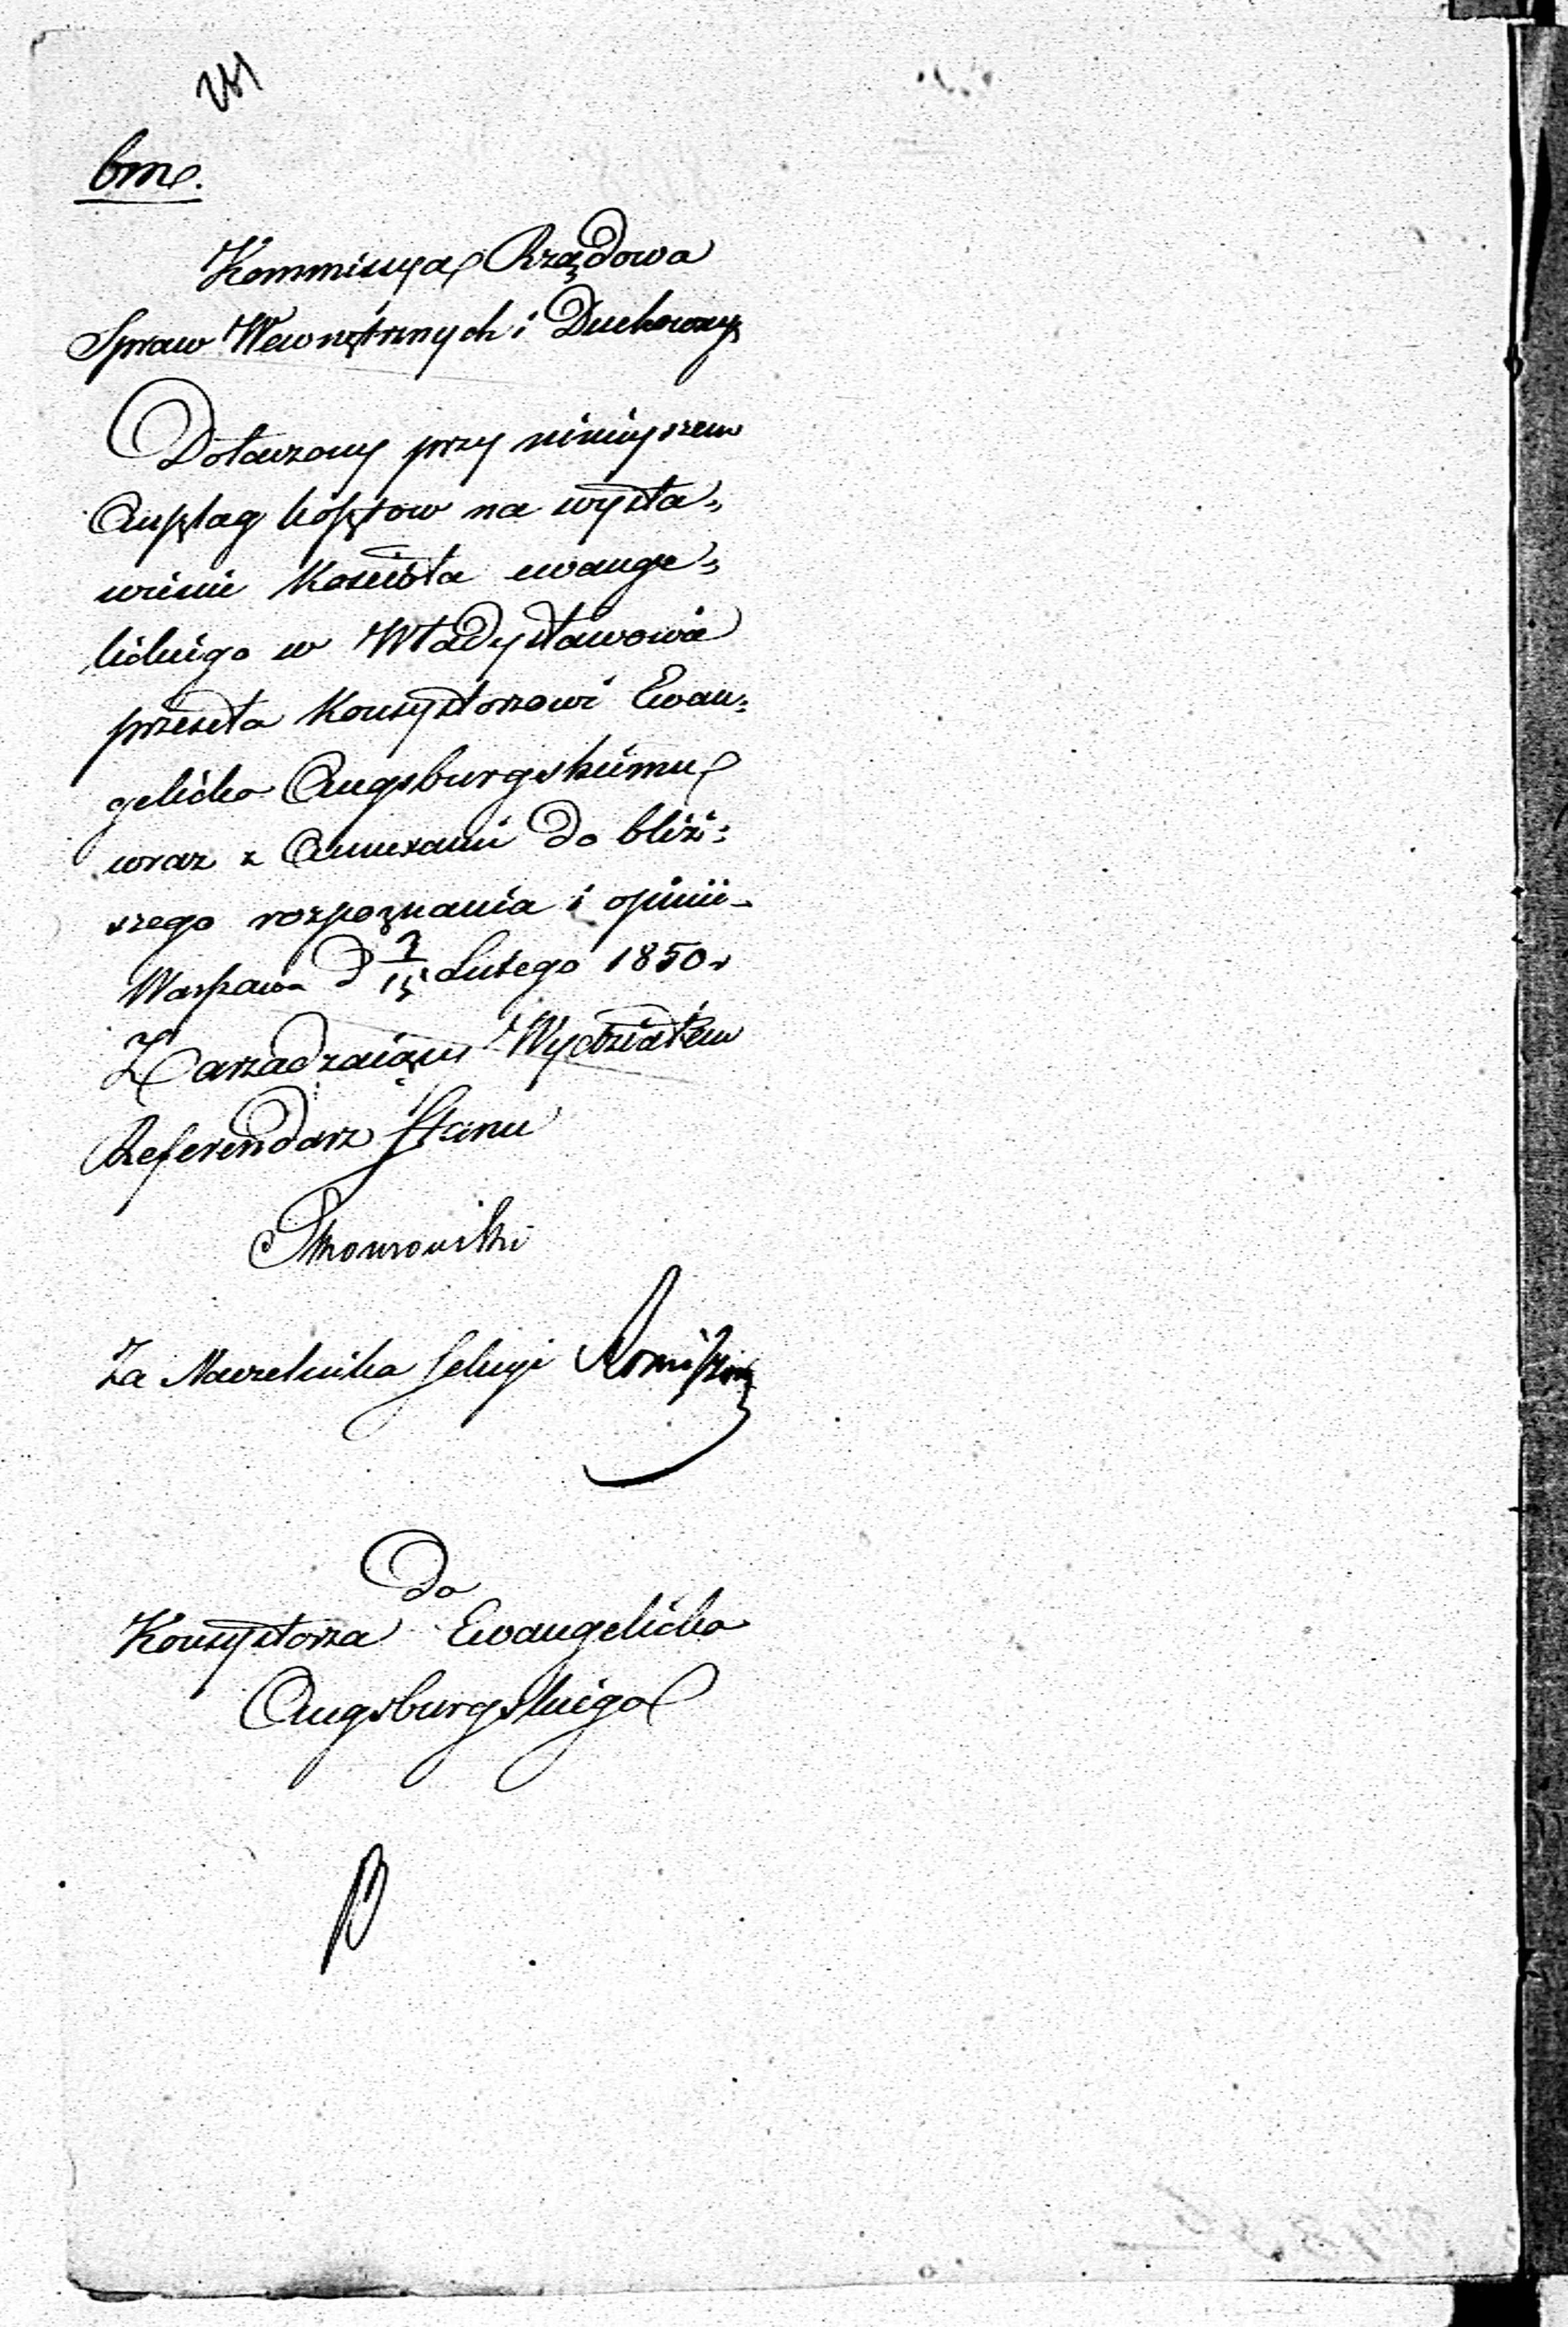 bm.
Kommissya Rządowa
Spraw Wewnętrznych i Duchownych
Dołączony przy niniejszem
Anszlag kosztow na wysta=
wienie Kościoła ewange=
lickiego w Władysławowie
przesyła Konsystorzowi Ewan=
gelicko Augsburgskiemu
wraz z Annexami do bliż=
szego rozpoznania i opinii
Warszawa d 3/15 Lutego 1850 r
Zarządzaiący Wydziałem
Referendarz Stanu
Za Naczelnika Sekcyi
Do
Konsystorza Ewangelicko
Augsburgskiego